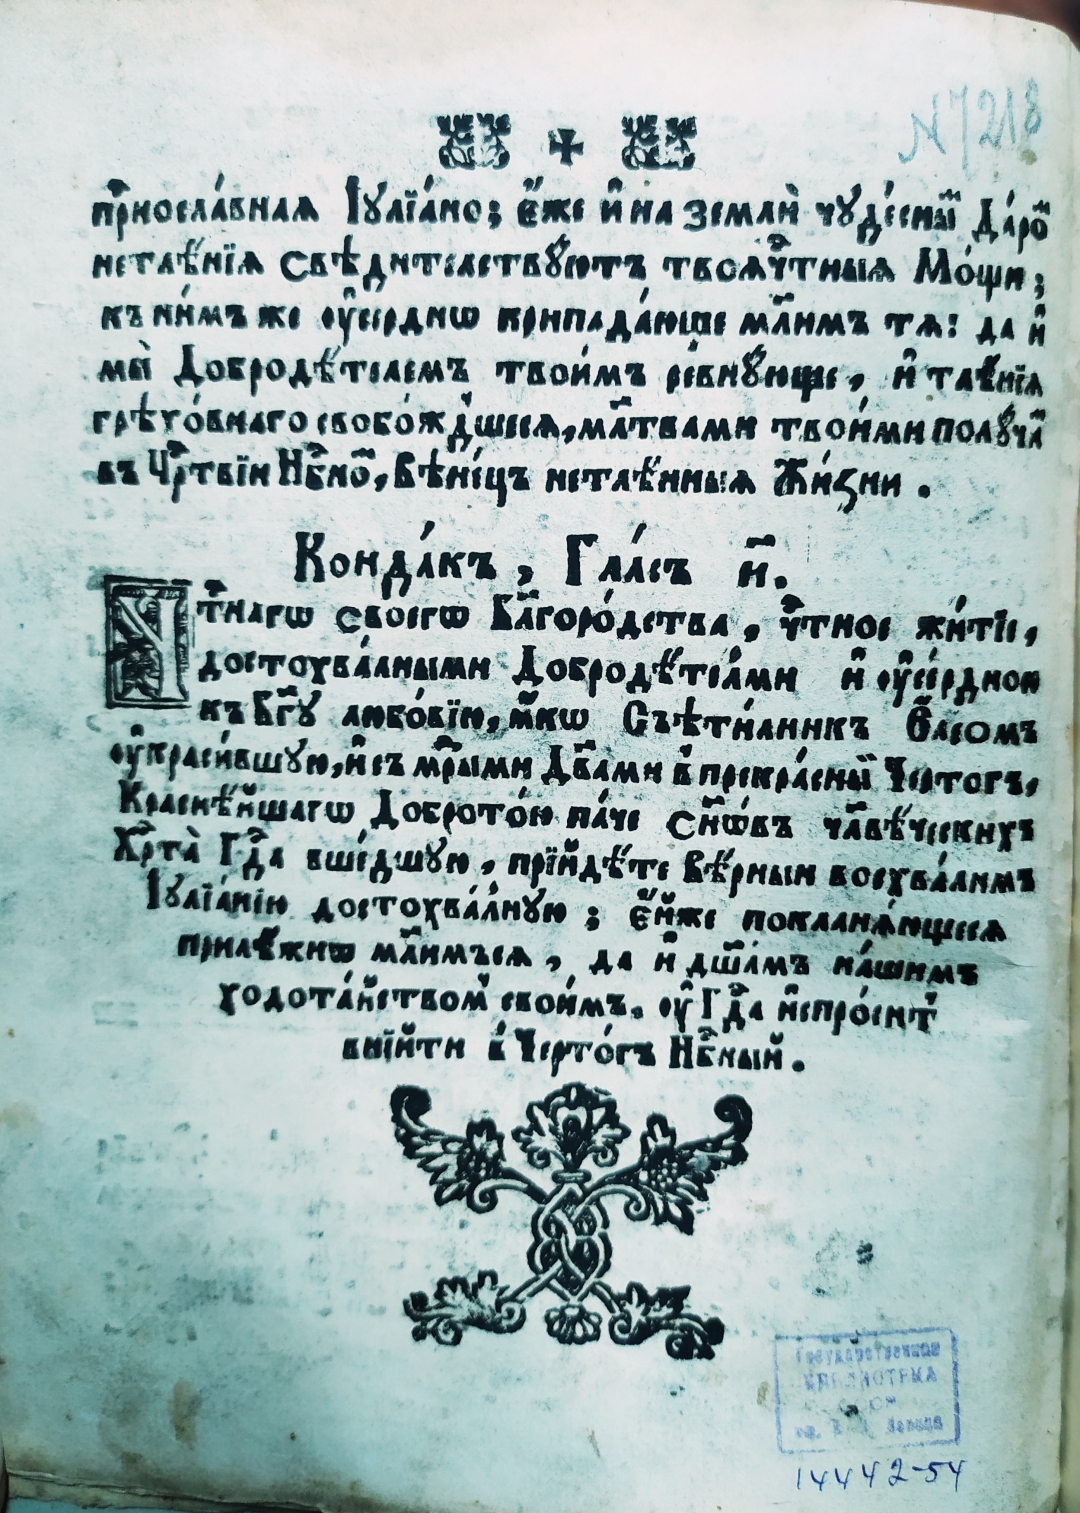 N 7218
прⷭ҇нославная Іꙋлїа́но; є҆́же и҆ на землѝ чꙋде́сныⷨ да́роⷨ
нетлѣ́нїѧ свѣ́дителствꙋютъ твоѧ чⷭ҇тныѧ Мо́щи;
къ ни́мъ же ᲂу҆се́рднѡ припада́юще мл҃имъ тѧ! да и҆
мы̀ Добродѣ́телемъ твои̑мъ ревнꙋ́юще, и҆ тлѣ́нїѧ
грѣхо́внаго свобо́ждшесѧ, мл҃твами твои́ми полꙋ́чиⷨ
въ Црⷭ҇твїи Нбⷭ҇ноⷨ, Вѣне́цъ нетлѣ́нныѧ Жи́зни.
Конда́къ, Гла́съ и҃.
Чⷭ҇тнагѡ своегѡ Бл҃горо́дства, чⷭ҇тное жи́тїе,
достохва́лными Добродѣ́телⷨми и҆ ᲂу҆се́рдною
къ Бг҃ꙋ любо́вїю, ꙗ҆́кѡ Свѣти́лникъ Є҆ле́омъ
ᲂу҆краси́вшꙋю, и҆ съ мꙋ́дрыми Дв҃ами в̾ прекра́сныⷨ Черто́гъ,
Краснѣ́йшагѡ Добротою па́че сн҃ѡ́въ чл҃вѣ́ческихъ
Хрⷭ҇та̀ Гдⷭ҇а вше́дшꙋю, прїйдѣ́те Вѣ́рныи восхва́лимъ
Іꙋлїа́нїю достохва́лнꙋю; є҆́йже покланѧ́ющесѧ
прилѣ́жнѡ мл҃имъсѧ, да и҆ дш҃а́мъ на́шимъ
ходота́йством̾ свои́мъ. ᲂу҆ Гдⷭ҇а и҆спро́сит̾
вні́йти в̾ Черто́гъ Нбⷭ҇ный.
Государственная
БИБЛИОТЕКА
СССР
им. В. И. Ленина
14442-54